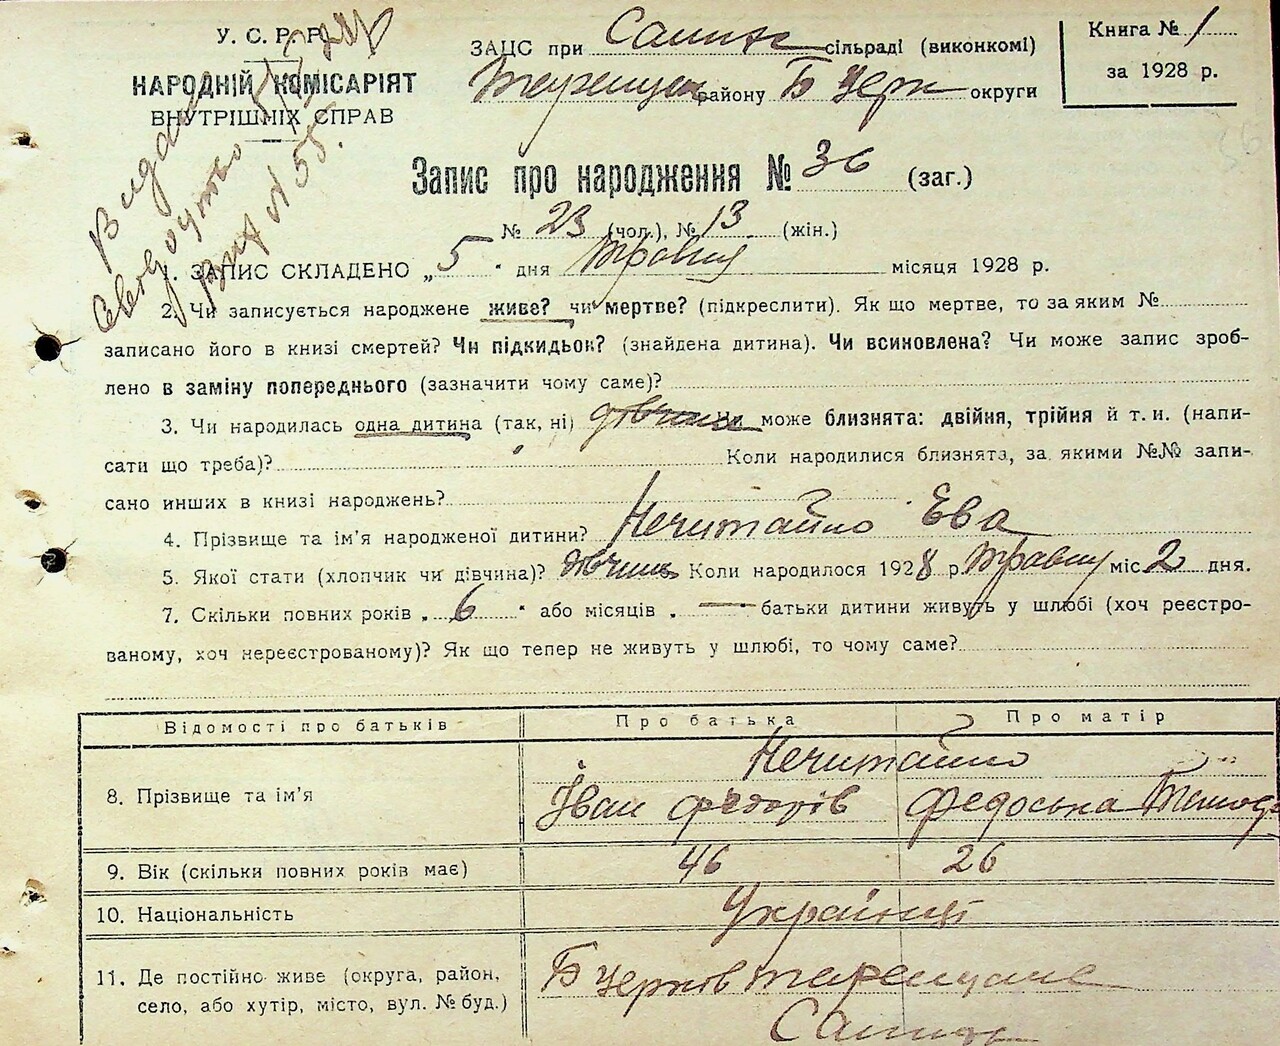 У. С. Р. Р.
НАРОДНІЙ КОМІСАРІЯТ
ВНУТРІШНІХ СПРАВ
ЗАЦС при сільраді (виконкомі)
району Б Церк округи
Книга № 1
за 1928 р.
Видано
№ 55.
Запис про народження № 36 (заг.)
№ 23 (чол.), № 13 (жін.)
1. ЗАПИС СКЛАДЕНО „ 5 " дня Травня місяця 1928 р.
2. Чи записується народжене живе? чи мертве? (підкреслити). Як що мертве, то за яким №
записано його в книзі смертей? Чи підкидьок? (знайдена дитина). Чи всиновлена? Чи може запис зроб-
лено в заміну попереднього (зазначити чому саме)?
3. Чи народилась одна дитина (так, ні) Чи може близнята: двійня, трійня й т. и. (напи-
сати що треба)? Коли народилися близнята, за якими №№ запи-
сано инших в книзі народжень?
4. Прізвище та ім'я народженої дитини? Нечитайло Ева
5. Якої стати (хлопчик чи дівчина)? дівчина Коли народилося 1928 р. Травня міс. 2 дня.
7. Скільки повних років „ 6 " або місяців „ — батьки дитини живуть у шлюбі (хоч реєстро-
ваному, хоч нереєстрованому)? Як що тепер не живуть у шлюбі, то чому саме?
Відомості про батьків Про батька Про матір
Нечитайло
8. Прізвище та ім'я Іван Федорів Федоська
9. Вік (скільки повних років має) 46 26
10. Національність Українці
11. Де постійно живе (округа, район, село, або хутір, місто, вул. № буд.) Б Церків